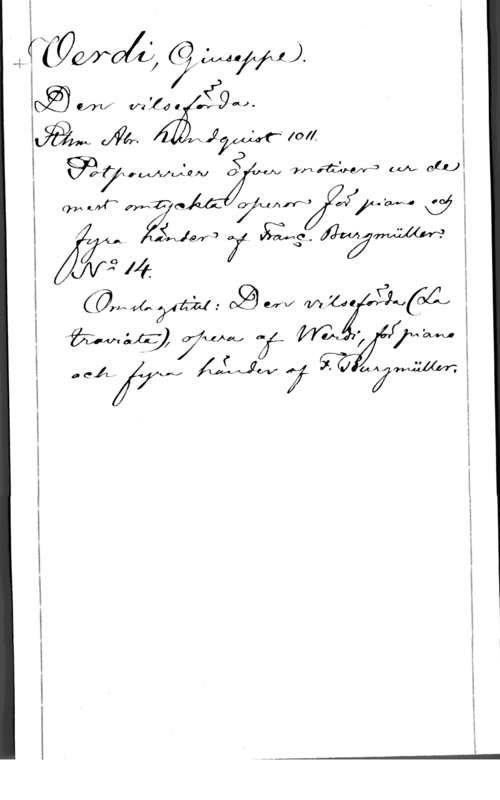 Verdi, Giuseppe.
Den vilseförda.
Sthm Abr. Lundquist 1011.
Potpourrier öfver motiver ur de
mest omtyckta operor för piano och
fyra händer af Franç. Burgmüller.
No 14.
Omslagstitel: Den vilseförda (La
traviata), opera af Werdi, för piano
och fyra händer af F. Burgmüller.